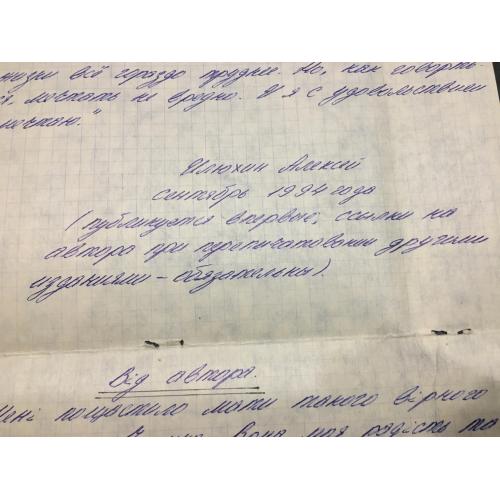 жизни всё гораздо труднее. Но, как говорит-
ся, мечтать не вредно. И я с удовольствием
мечтаю."
Илюхин Алексей
сентябрь 1994 года
(публикуется впервые, ссылки на
автора при перепечатовании другими
изданиями – обязательны).
Від автора.
Мені пощастило мати такого вірного
Вона моя радість та